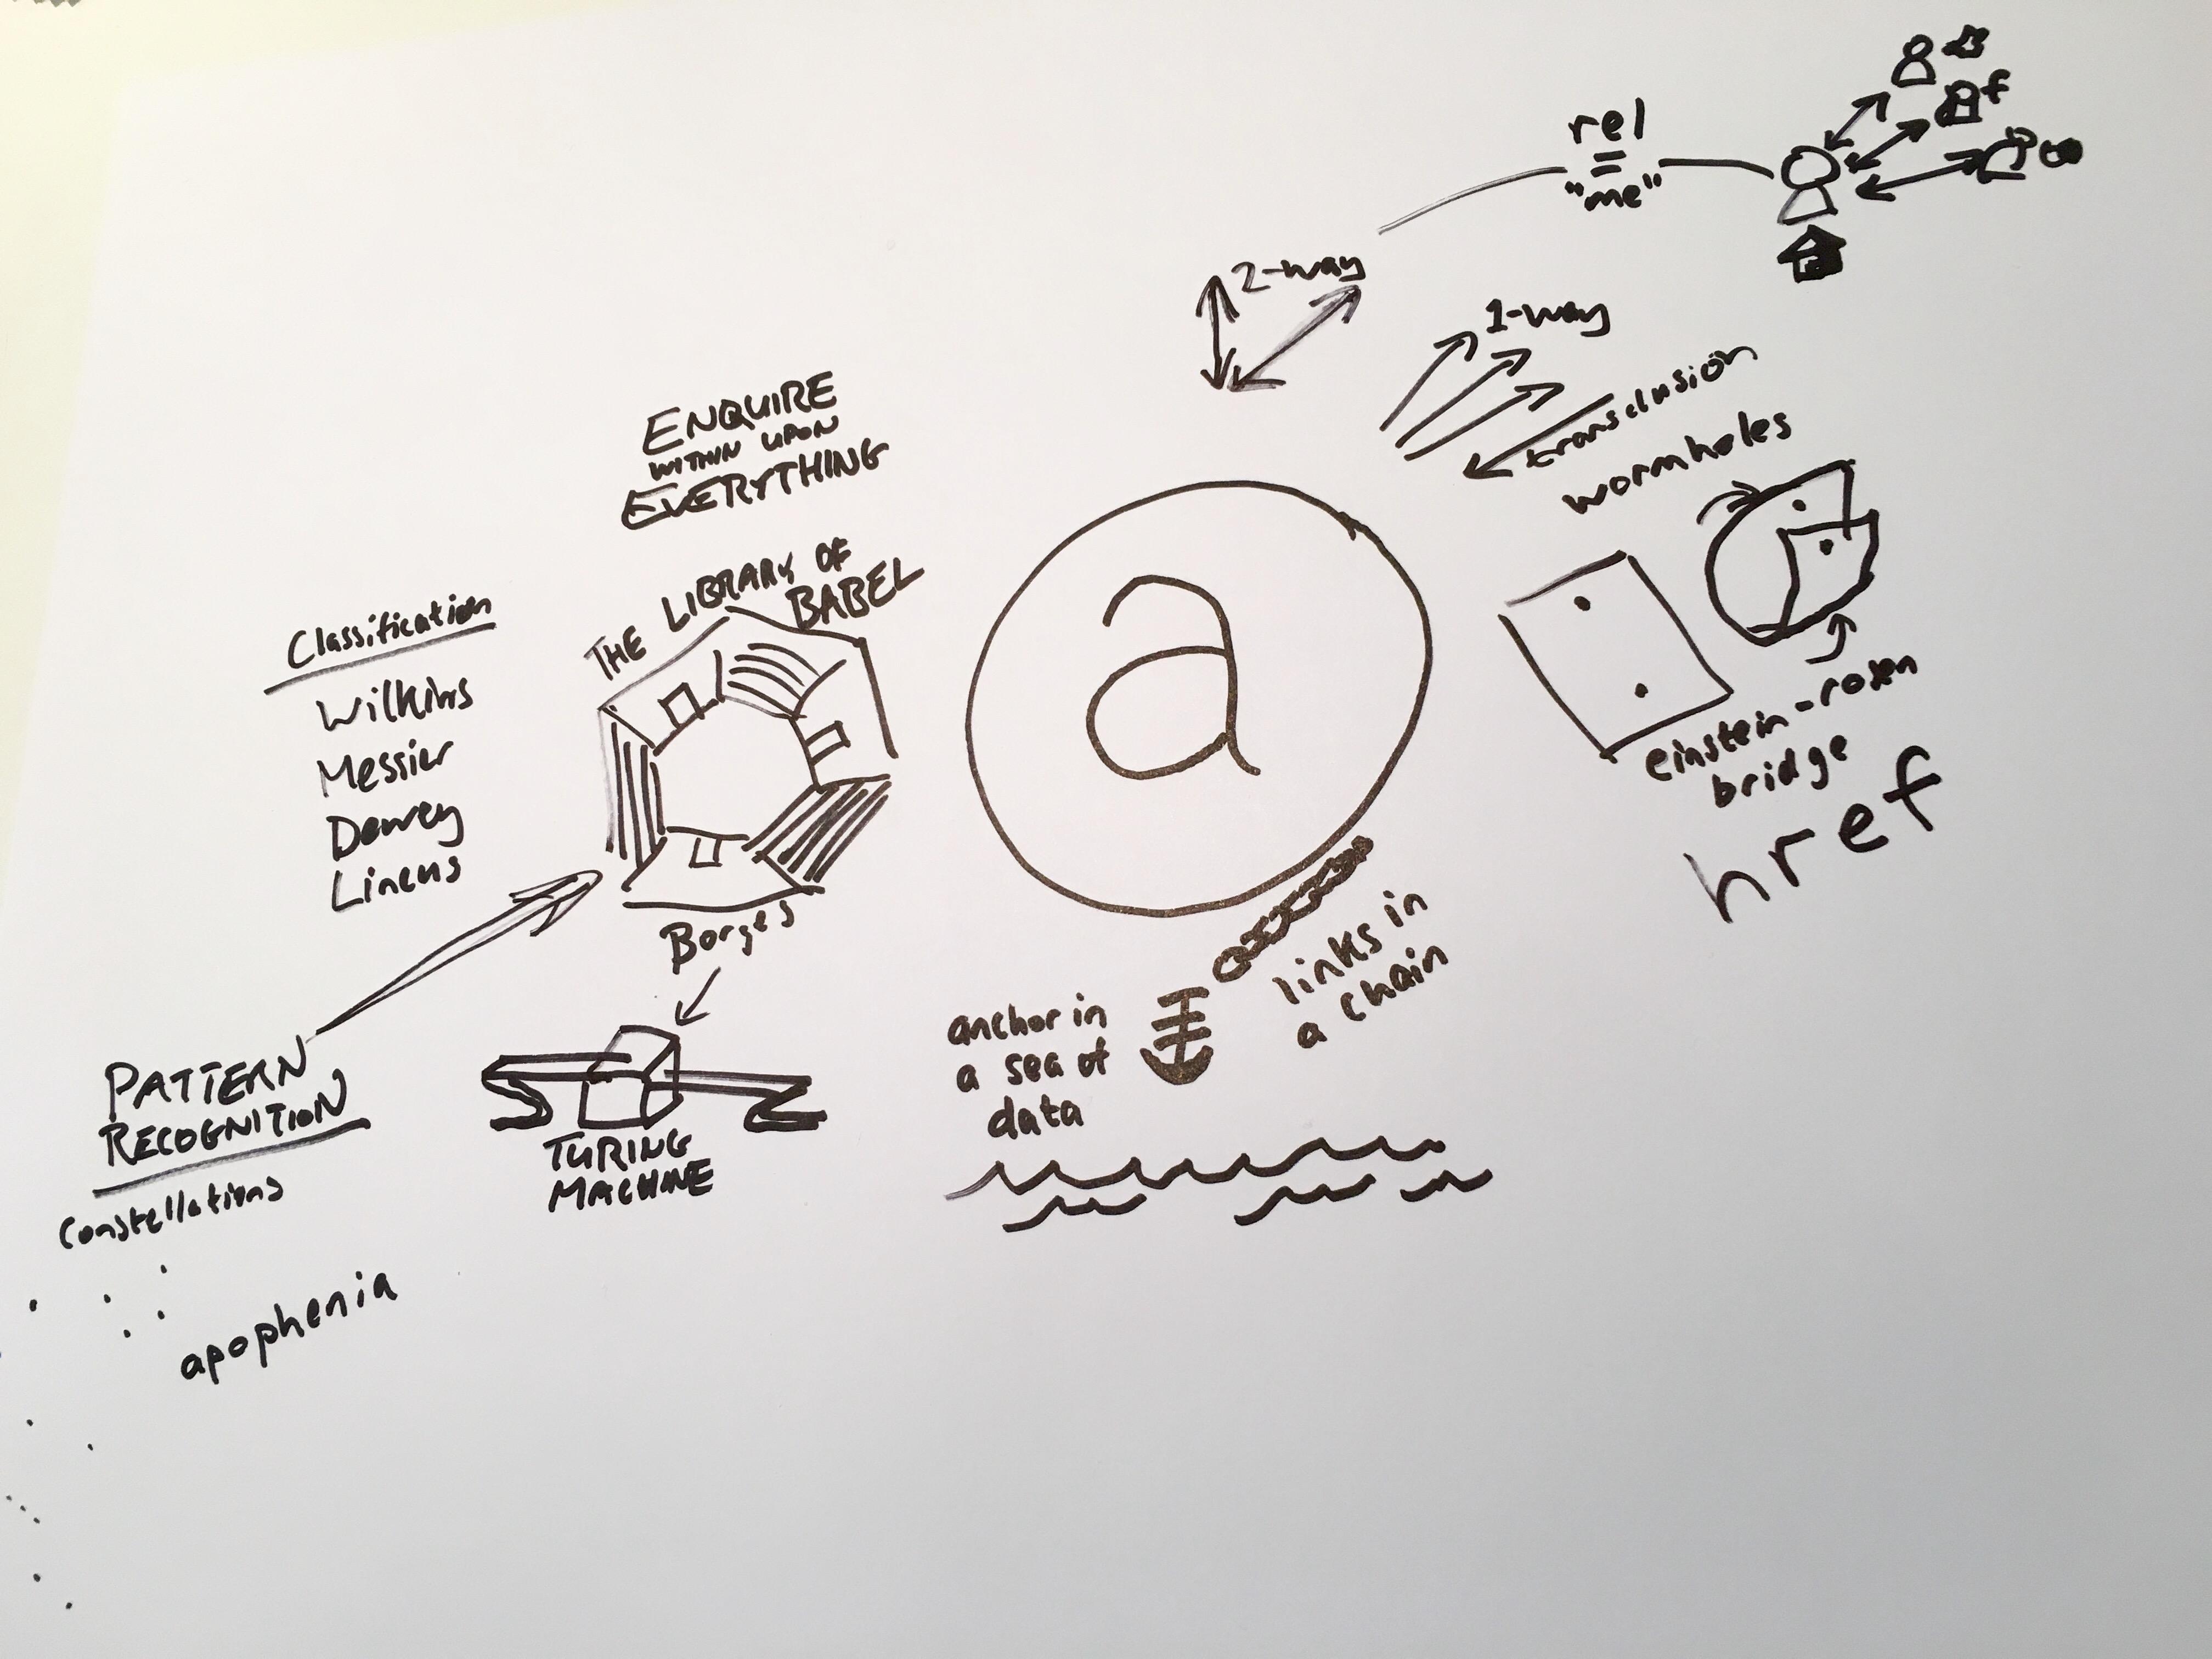 rel
=
"me"
f
2-way
1-way
transclusion
wormholes
einstein-rosen
bridge
href
ENQUIRE
WITHIN UPON
EVERYTHING
THE LIBRARY OF
BABEL
Borges
Classification
Wilkins
Messier
Dewey
Lineus
a
links in
a chain
anchor in
a sea of
data
TURING
MACHINE
PATTERN
RECOGNITION
Constellations
apophenia